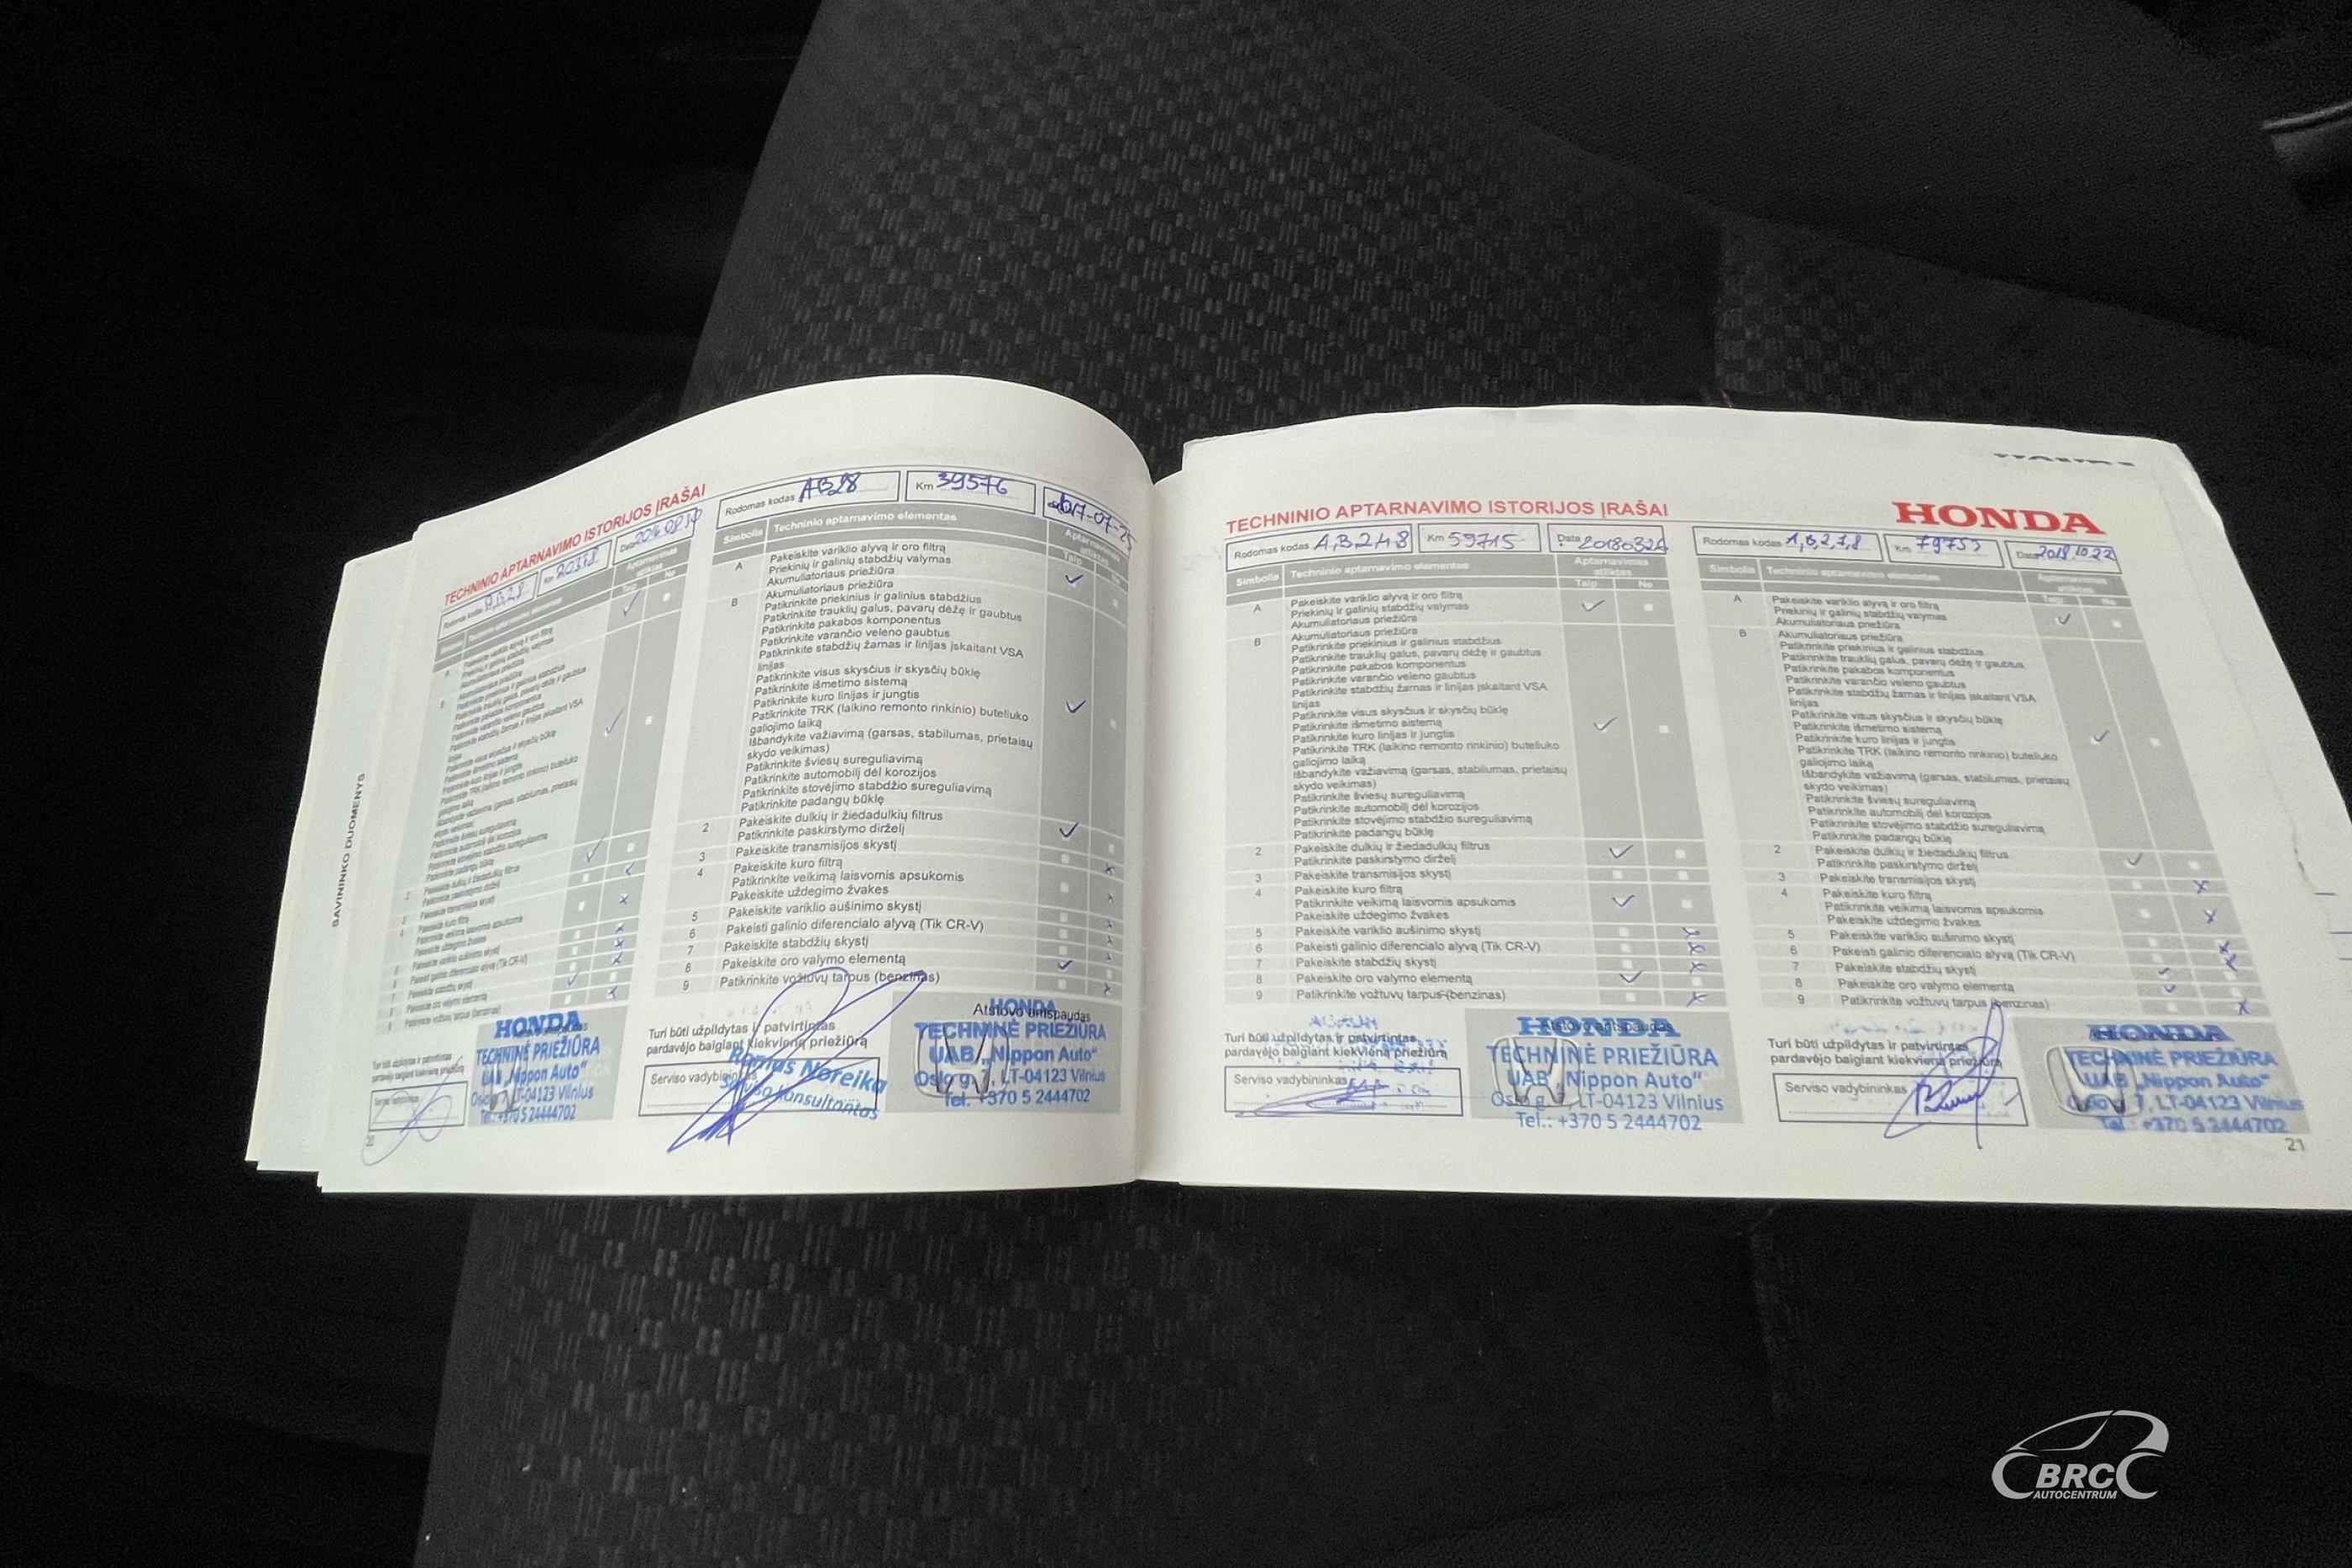 SAVININKO DUOMENYS
TECHNINIO APTARNAVIMO ISTORIJOS ĮRAŠAI
Rodomas kodas
Km
Data
Aptarnavimas
atliktas
Taip Ne
Pakeiskite variklio alyvą ir oro filtrą
HONDA
TECHNINĖ PRIEŽIŪRA
UAB „Nippon Auto“
LT-04123 Vilnius
Tel.: +370 5 2444702
20
Rodomas kodas AB28 Km 39576 2017-07-25
Simbolis Techninio aptarnavimo elementas
A Pakeiskite variklio alyvą ir oro filtrą
Priekinių ir galinių stabdžių valymas
Akumuliatoriaus priežiūra
B Akumuliatoriaus priežiūra
Patikrinkite priekinius ir galinius stabdžius
Patikrinkite trauklių galus, pavarų dėžę ir gaubtus
Patikrinkite pakabos komponentus
Patikrinkite varančio veleno gaubtus
Patikrinkite stabdžių žarnas ir linijas įskaitant VSA
linijas
Patikrinkite visus skysčius ir skysčių būklę
Patikrinkite išmetimo sistemą
Patikrinkite kuro linijas ir jungtis
Patikrinkite TRK (laikino remonto rinkinio) buteliuko
galiojimo laiką
Išbandykite važiavimą (garsas, stabilumas, prietaisų
skydo veikimas)
Patikrinkite šviesų sureguliavimą
Patikrinkite automobilį dėl korozijos
Patikrinkite stovėjimo stabdžio sureguliavimą
Patikrinkite padangų būklę
2 Pakeiskite dulkių ir žiedadulkių filtrus
Patikrinkite paskirstymo dirželį
3 Pakeiskite transmisijos skystį
4 Pakeiskite kuro filtrą
Patikrinkite veikimą laisvomis apsukomis
Pakeiskite uždegimo žvakes
5 Pakeiskite variklio aušinimo skystį
6 Pakeisti galinio diferencialo alyvą (Tik CR-V)
7 Pakeiskite stabdžių skystį
8 Pakeiskite oro valymo elementą
9 Patikrinkite vožtuvų tarpus (benzinas)
Turi būti užpildytas ir patvirtintas
pardavėjo baigiant kiekvieną priežiūrą
Serviso vadybininkas
Noreika
Atstovo antspaudas
HONDA
TECHNINĖ PRIEŽIŪRA
UAB „Nippon Auto“
Oslo g. 7, LT-04123 Vilnius
Tel. +370 5 2444702
TECHNINIO APTARNAVIMO ISTORIJOS ĮRAŠAI
Rodomas kodas A,B,2,4,8 Km 59715 Data
Simbolis Techninio aptarnavimo elementas Aptarnavimas
atliktas
Taip Ne
A Pakeiskite variklio alyvą ir oro filtrą
Priekinių ir galinių stabdžių valymas
Akumuliatoriaus priežiūra
B Akumuliatoriaus priežiūra
Patikrinkite priekinius ir galinius stabdžius
Patikrinkite trauklių galus, pavarų dėžę ir gaubtus
Patikrinkite pakabos komponentus
Patikrinkite varančio veleno gaubtus
Patikrinkite stabdžių žarnas ir linijas įskaitant VSA
linijas
Patikrinkite visus skysčius ir skysčių būklę
Patikrinkite išmetimo sistemą
Patikrinkite kuro linijas ir jungtis
Patikrinkite TRK (laikino remonto rinkinio) buteliuko
galiojimo laiką
Išbandykite važiavimą (garsas, stabilumas, prietaisų
skydo veikimas)
Patikrinkite šviesų sureguliavimą
Patikrinkite automobilį dėl korozijos
Patikrinkite stovėjimo stabdžio sureguliavimą
Patikrinkite padangų būklę
2 Pakeiskite dulkių ir žiedadulkių filtrus
Patikrinkite paskirstymo dirželį
3 Pakeiskite transmisijos skystį
4 Pakeiskite kuro filtrą
Patikrinkite veikimą laisvomis apsukomis
Pakeiskite uždegimo žvakes
5 Pakeiskite variklio aušinimo skystį
6 Pakeisti galinio diferencialo alyvą (Tik CR-V)
7 Pakeiskite stabdžių skystį
8 Pakeiskite oro valymo elementą
9 Patikrinkite vožtuvų tarpus (benzinas)
Turi būti užpildytas ir patvirtintas
pardavėjo baigiant kiekvieną priežiūrą
Serviso vadybininkas
Atstovo antspaudas
HONDA
TECHNINĖ PRIEŽIŪRA
UAB „Nippon Auto“
Oslo g. 7, LT-04123 Vilnius
Tel.: +370 5 2444702
HONDA
Rodomas kodas Km 79753 Data 2018 10.22
Simbolis Techninio aptarnavimo elementas Aptarnavimas
atliktas
A Pakeiskite variklio alyvą ir oro filtrą
Priekinių ir galinių stabdžių valymas
Akumuliatoriaus priežiūra
B Akumuliatoriaus priežiūra
Patikrinkite priekinius ir galinius stabdžius
Patikrinkite trauklių galus, pavarų dėžę ir gaubtus
Patikrinkite pakabos komponentus
Patikrinkite varančio veleno gaubtus
Patikrinkite stabdžių žarnas ir linijas įskaitant VSA
linijas
Patikrinkite visus skysčius ir skysčių būklę
Patikrinkite išmetimo sistemą
Patikrinkite kuro linijas ir jungtis
Patikrinkite TRK (laikino remonto rinkinio) buteliuko
galiojimo laiką
Išbandykite važiavimą (garsas, stabilumas, prietaisų
skydo veikimas)
Patikrinkite šviesų sureguliavimą
Patikrinkite automobilį dėl korozijos
Patikrinkite stovėjimo stabdžio sureguliavimą
Patikrinkite padangų būklę
2 Pakeiskite dulkių ir žiedadulkių filtrus
Patikrinkite paskirstymo dirželį
3 Pakeiskite transmisijos skystį
4 Pakeiskite kuro filtrą
Patikrinkite veikimą laisvomis apsukomis
Pakeiskite uždegimo žvakes
5 Pakeiskite variklio aušinimo skystį
6 Pakeisti galinio diferencialo alyvą (Tik CR-V)
7 Pakeiskite stabdžių skystį
8 Pakeiskite oro valymo elementą
9 Patikrinkite vožtuvų tarpus (benzinas)
Turi būti užpildytas ir patvirtintas
pardavėjo baigiant kiekvieną priežiūrą
Serviso vadybininkas
HONDA
TECHNINĖ PRIEŽIŪRA
UAB „Nippon Auto“
Oslo g. 7, LT-04123 Vilnius
Tel.: +370 5 2444702
21
BRC
AUTOCENTRUM